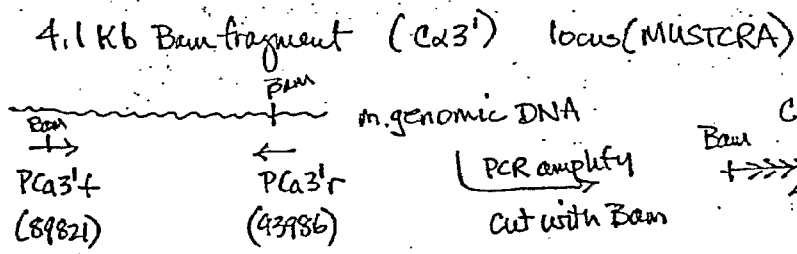 4.1 Kb Bam fragment (Cα3') locus (MUSTCRA)
Bam
Bam m.genomic DNA C
Bam
PCa3'f PCa3'r PCR amplify
(89821) (93986) cut with Bam